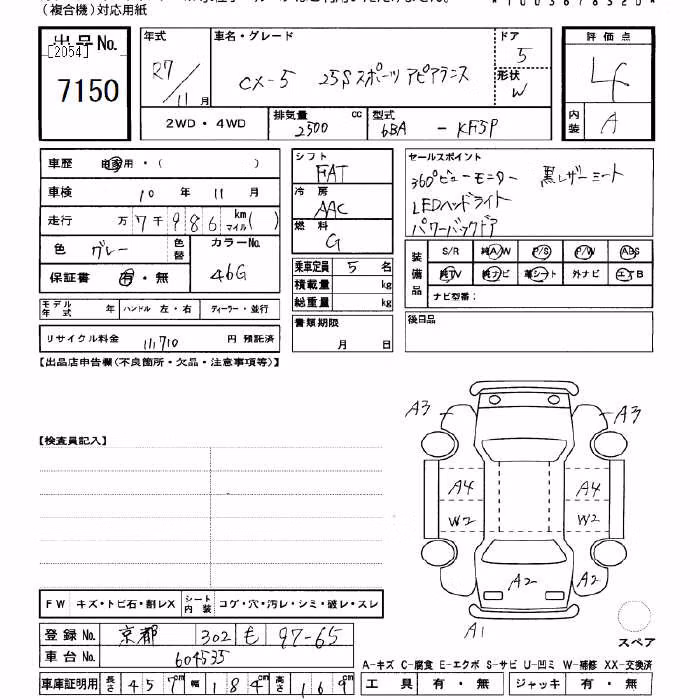 （複合機）対応用紙
出品No.
[2054]
7150
年式
R7/11月
車名・グレード
CX-5 25Sスポーツアピアランス
ドア
5
形状
W
評価点
4
内装
A
2WD・4WD
排気量 cc
2500
型式
6BA - KF5P
車歴 自家用・( )
車検 10年 11月
走行 万7千986 km マイル( )
色 グレー
色替
カラーNo.
46G
保証書 有・無
モデル年式 年 ハンドル 左・右 ディーラー・並行
リサイクル料金 11710 円 預託済
シフト
FAT
冷房
AAC
燃料
G
乗車定員 5名
積載量 kg
総重量 kg
書類期限
月 日
セールスポイント
360°ビューモニター 黒レザーシート
LEDヘッドライト
パワーバックドア
装備品
S/R 純A/W P/S P/W ABS
純TV 純ナビ 革シート 外ナビ エアB
ナビ型番：
後日品
【出品店申告欄(不良箇所・欠品・注意事項等)】
【検査員記入】
A3 A3
A4 A4
W2 W2
A2
A1
スペア
FW キズ・トビ石・割レX シート内装 コゲ・穴・汚レ・シミ・破レ・スレ
登録No. 京都 302 も 97-65
車台No. 604535
車庫証明用 長さ 457cm 幅 184cm 高さ 169cm
A-キズ C-腐食 E-エクボ S-サビ U-凹ミ W-補修 XX-交換済
工具 有・無 ジャッキ 有・無